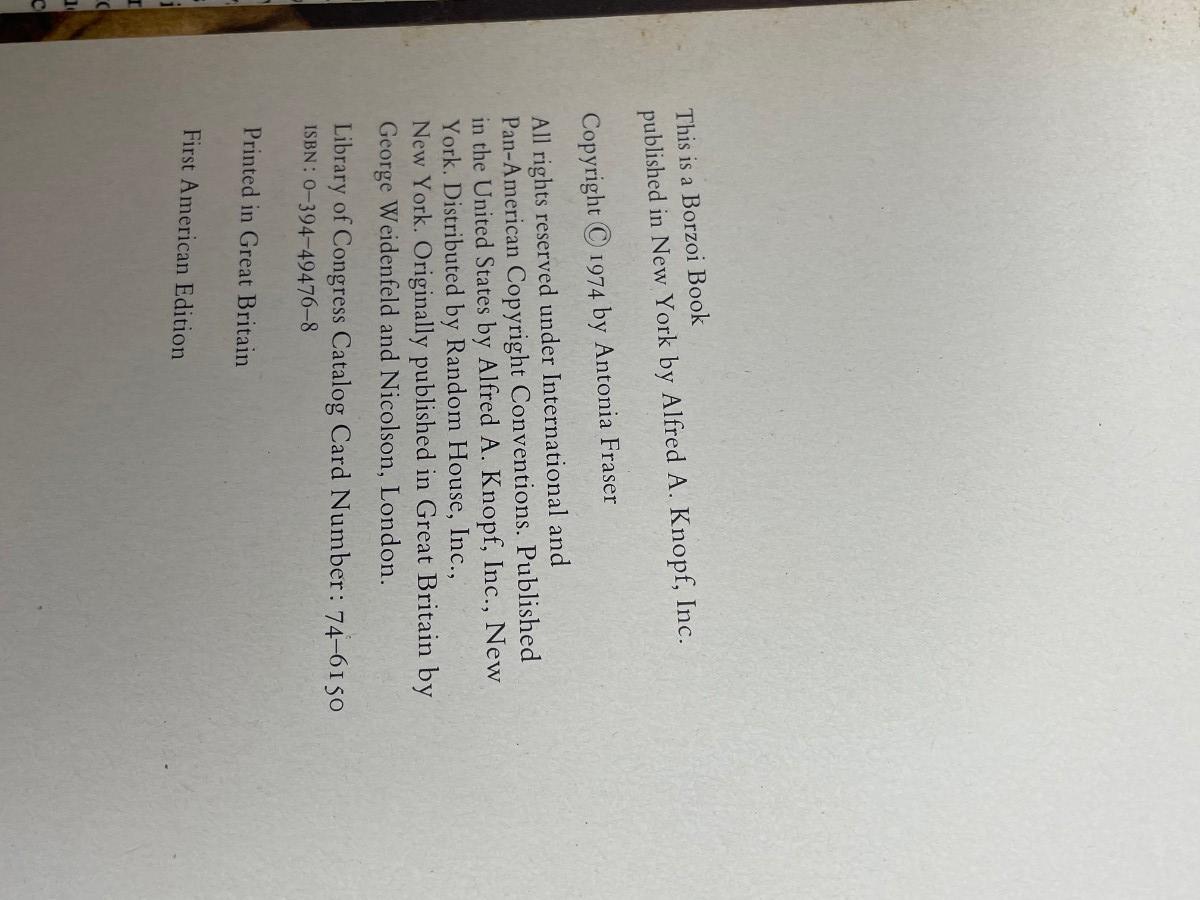 This is a Borzoi Book
published in New York by Alfred A. Knopf, Inc.
Copyright © 1974 by Antonia Fraser
All rights reserved under International and
Pan-American Copyright Conventions. Published
in the United States by Alfred A. Knopf, Inc., New
York. Distributed by Random House, Inc.,
New York. Originally published in Great Britain by
George Weidenfeld and Nicolson, London.
Library of Congress Catalog Card Number: 74–6150
ISBN: 0–394–49476–8
Printed in Great Britain
First American Edition